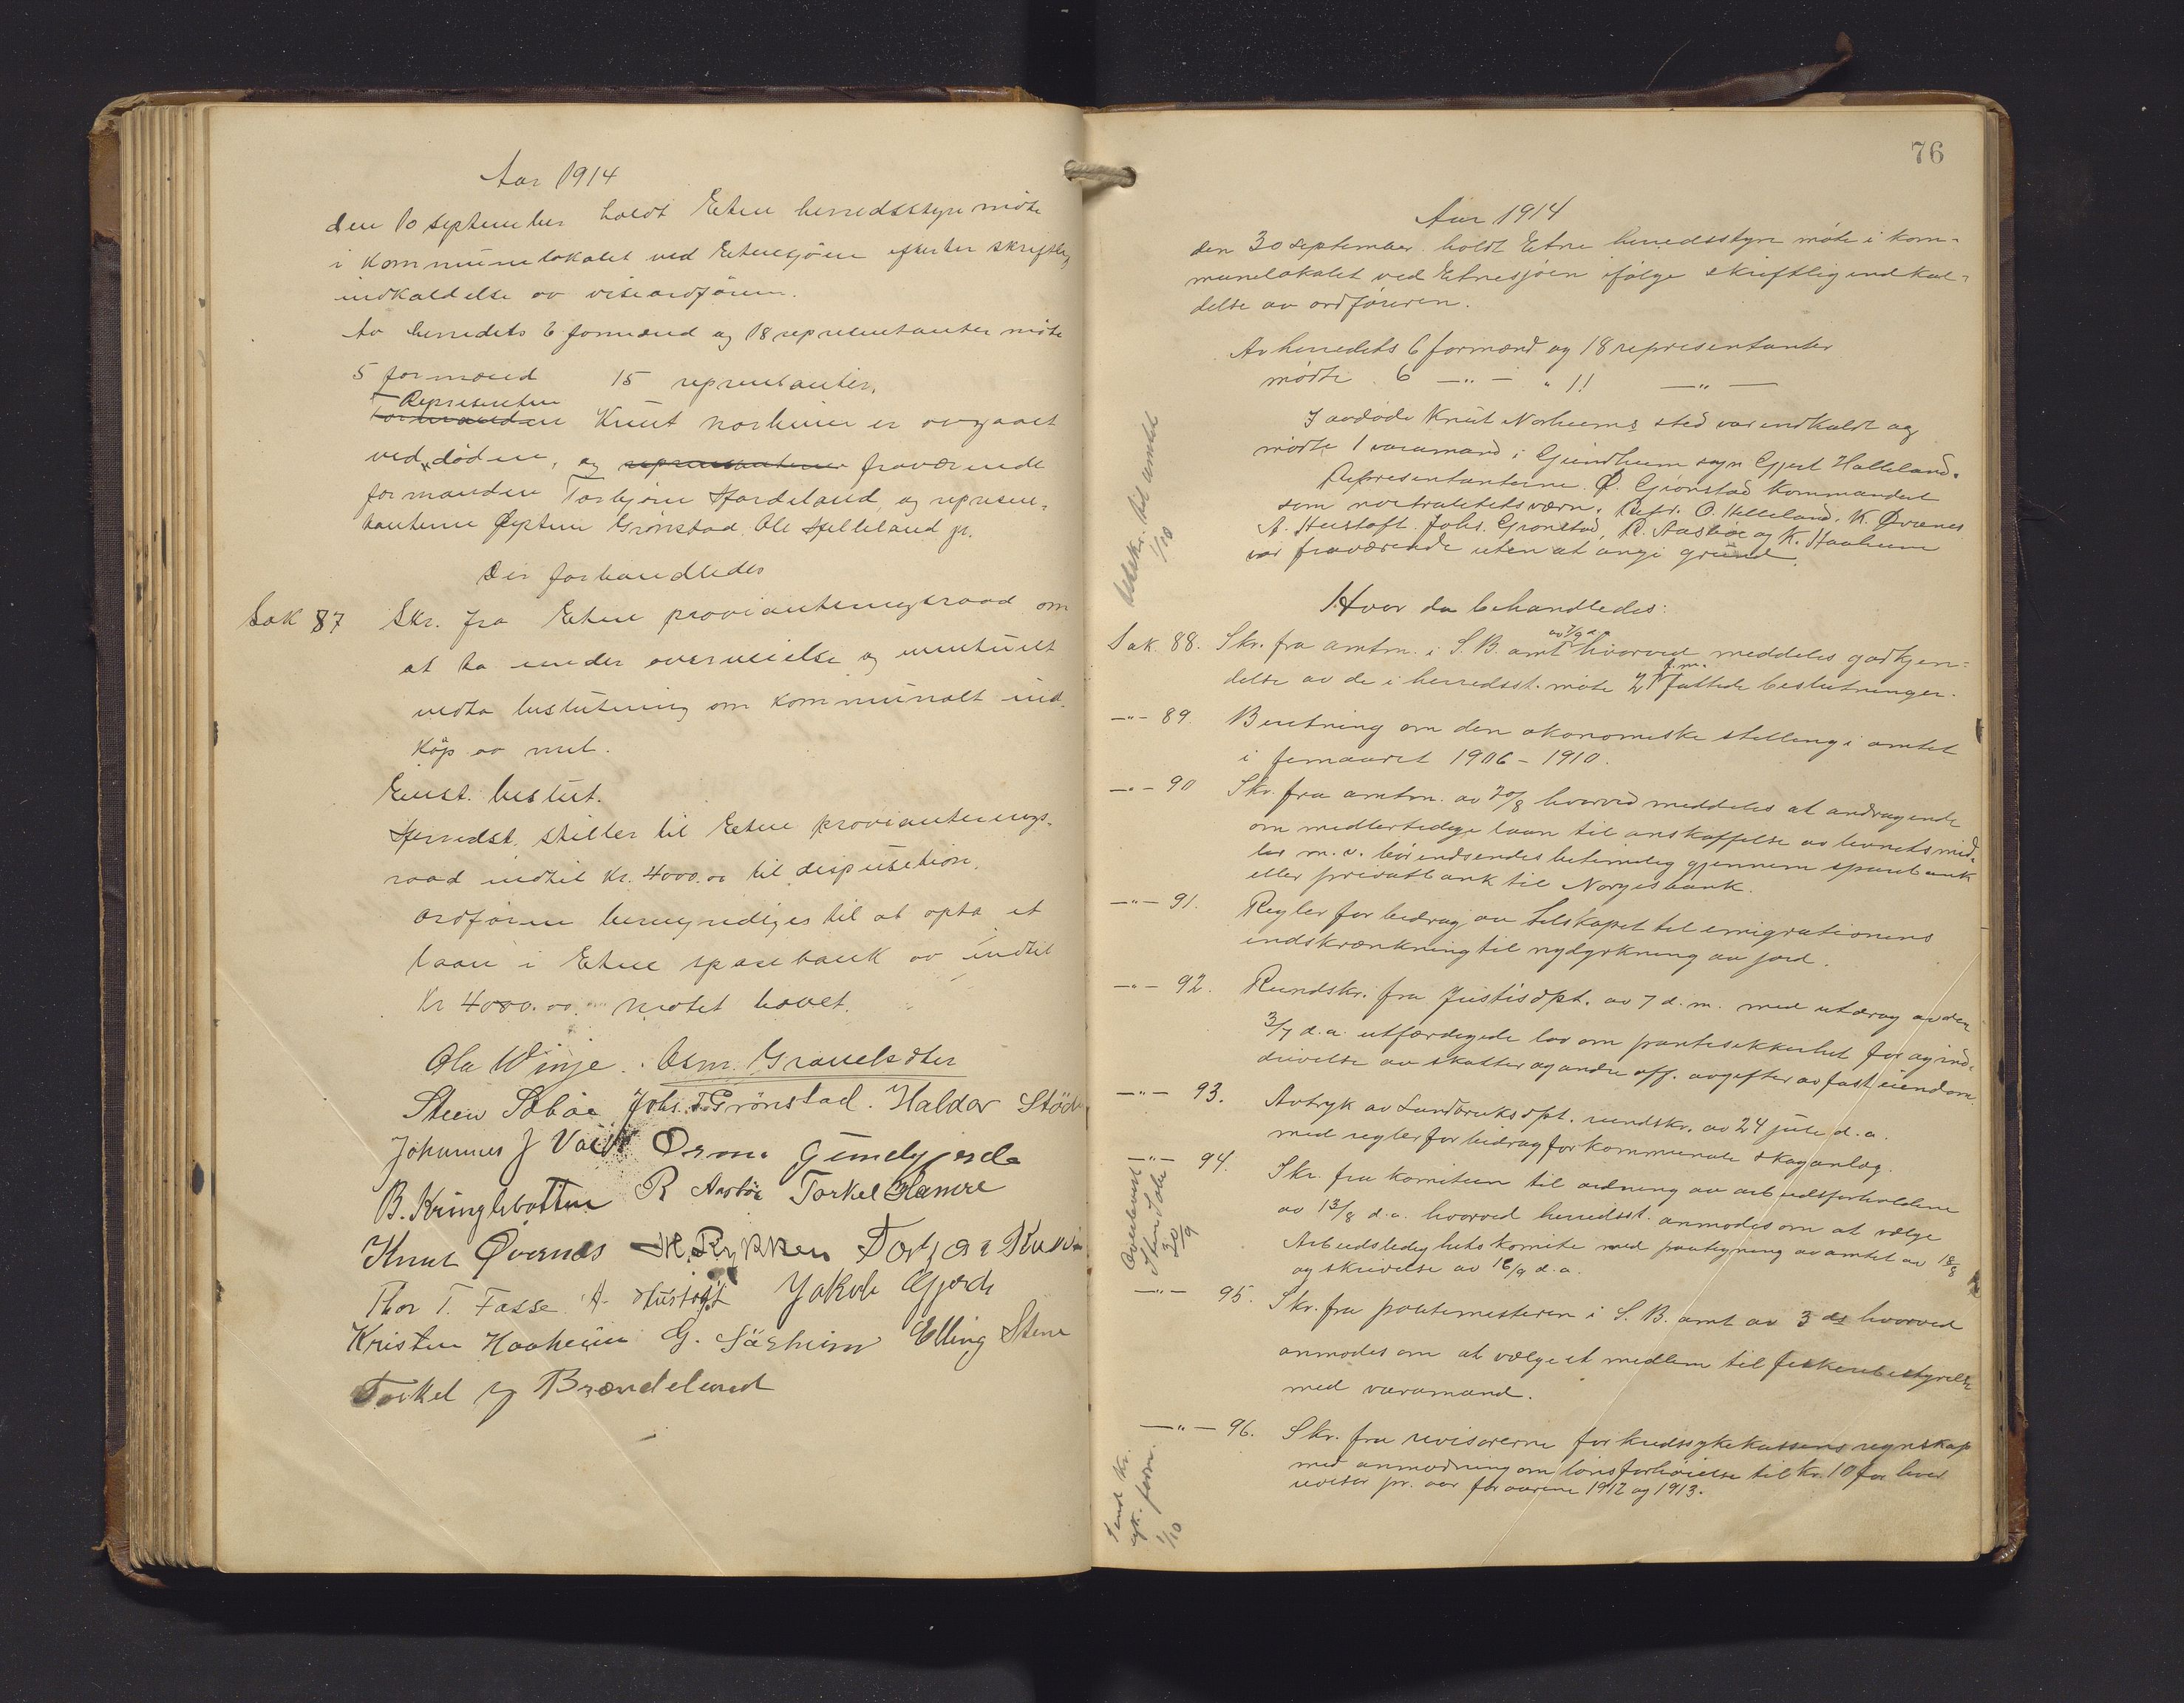 Aar 1914
den 10 september holdt Etne herredsstyre møte
i kommunelokalet ved Etnesjøen efter skriftlig
indkaldelse av viseordføreren.
Av herredets 6 formænd og 18 representanter møtte
5 formænd 15 repræsentanter.
Representen
Formanden Knut Norheim er avgaaet
ved døden, og representanterne fraværende
formanden Torbjørn Hardeland, og represen-
tanterne Øystein Grønstad, Ole Helleland jr.
Der forhandledes
Sak 87 Skr. fra Etne provianteringsraad om
at ta under overveielse og eventuelt
vedta beslutning om kommunalt ind-
kjøp av mel.
Enst. beslut.
Herredst. stiller til Etne provianterings-
raad indtil kr. 4000.00 til disposition.
Ordføren bemyndiges til at opta et
laan i Etne sparebank av indtil
Kr 4000.00. Møtet hævet.
Ola Winje. Osm. Grauelsæter
Steen Sæbøe Johs. T. Grønstad. Haldor Stöd
Johannes J Vad Orm. Gundgjerde
B. Kringlebotten R Aasbøe Torkel Hamre
Knut Øvernes H. Rykken Torger
Thor T. Fosse A. Hustoft Jakob Gjerde
Kristen Haaheim G. Särheim Elling Stene
Torkel J Brændeland
76
Aar 1914
den 30 september holdt Etne herredsstyre møte i kom-
munelokalet ved Etnesjøen ifølge skriftlig indkal-
delse av ordføreren.
Av herredets 6 formænd og 18 representanter
mødte 6 —"— " 11 —"—
I avdøde Knut Norheims sted var indkaldt og
mødte 1 varamand i Grindheim sogn Gjert Halleland.
Representanterne Ø. Grönstad kommandert
som nøitralitetsværn. Repr. O. Helleland, K. Øvernes
A. Hustoft. Johs. Grønstad, R. Aasbøe og K. Haaheim
var fraværende uten at angi grund.
Utskr. til amtet
1/10
Hvor da behandledes:
av 7/9 d.a.
Sak. 88. Skr. fra amtm. i S. B. amt hvorved meddeles godkjen-
f.m.
delse av de i herredsst. møte 21 fattede beslutninger.
—"— 89. Beretning om den økonomiske stilling i amtet
i femaaret 1906–1910.
—"— 90 Skr. fra amtm. av 20/8 hvorved meddeles at andragende
om midlertidige laan til anskaffelse av levnetsmid-
ler m. v. bør indsendes betimelig gjennem sparebank
eller privatbank til Norges bank.
—"— 91. Regler for bidrag av Selskapet til emigrationens
indskrænkning til nydyrkning av jord.
—"— 92. Rundskr. fra Justisdpt. av 7 d. m. med utdrag av den
3/7 d.a. utfærdigede lov om pantesikkerhet for og ind-
drivelse av skatter og andre off. avgifter av fast eiendom.
—"— 93. Avtryk av Landbruksdpt. rundskr. av 24 juli d. a.
med regler for bidrag for kommunale skoganlæg.
—"— 94. Skr. fra komiteen til ordning av arbeidsforholdene
av 13/8 d. a. hvorved herredsst. anmodes om at vælge
Arbeidsledighets komite med paategning av amtet av 18/8
og skrivelse av 16/9 d. a.
30/9
—"— 95. Skr. fra politimesteren i S. B. amt av 3 ds hvorved
anmodes om at vælge et medlem til fiskeribestyrelse
med varamand.
—"— 96. Skr. fra revisorerne for kredssykekassens regnskap
med anmodning om lønsforhøielse til kr. 10 for hver
revisor pr. aar for aarene 1912 og 1913.
Send kr.
syk. form.
1/10